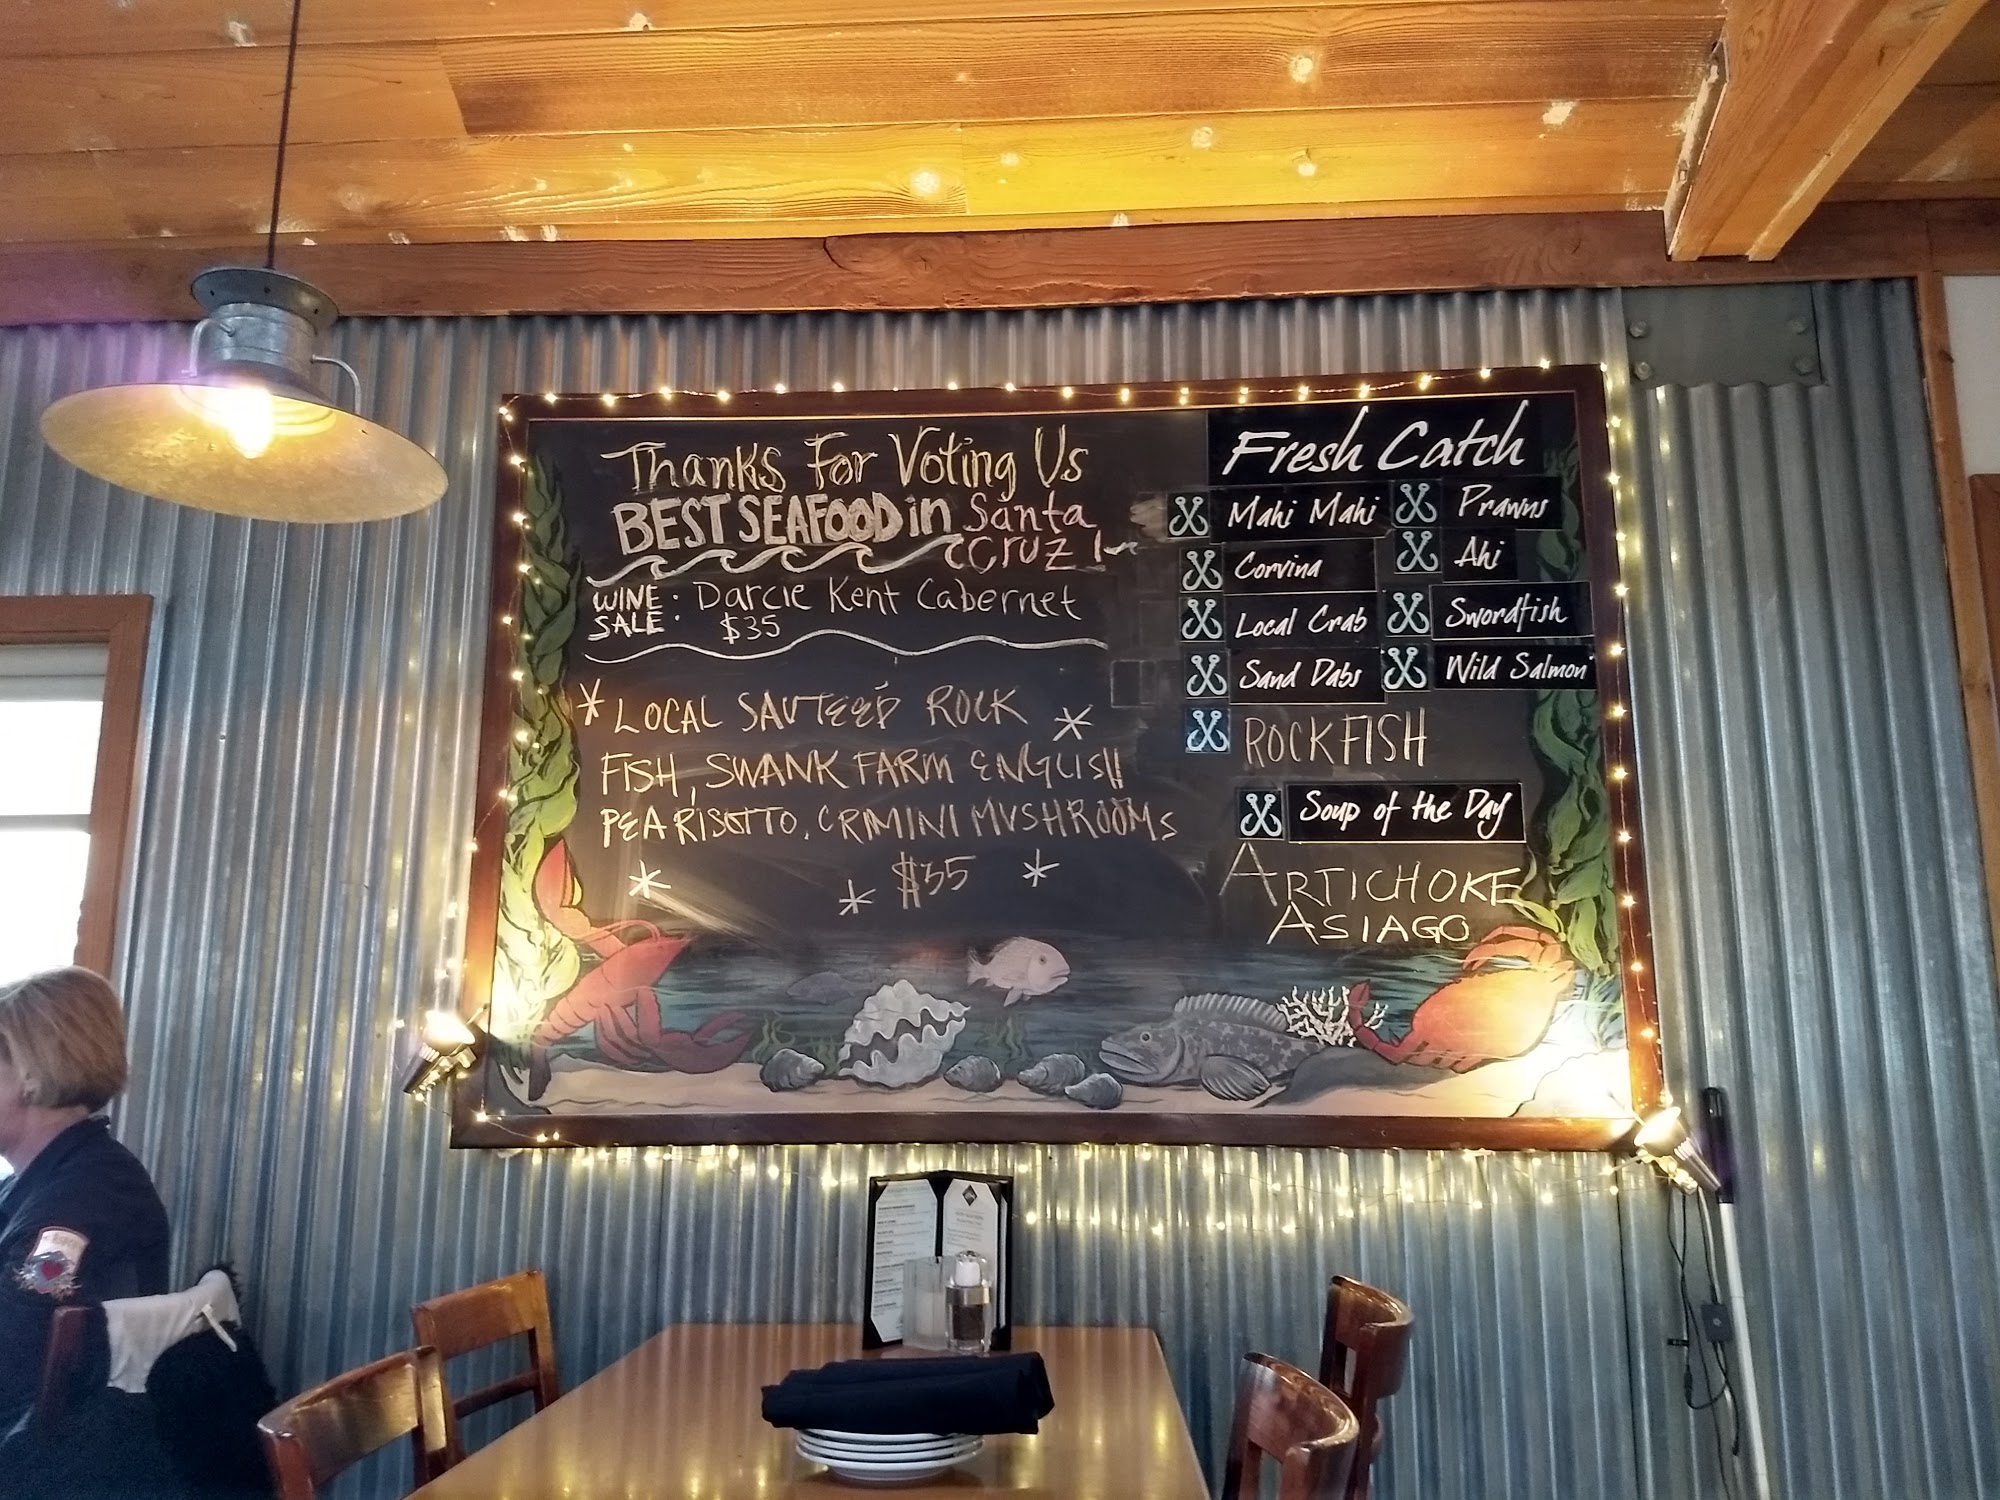 Thanks For Voting Us
BEST SEAFOOD in Santa
Cruz!
WINE SALE: Darcie Kent Cabernet
$35
* LOCAL SAUTEÉD ROCK *
FISH, SWANK FARM ENGLISH
PEA RISOTTO, CRIMINI MUSHROOMS
* * $35 *
Fresh Catch
Mahi Mahi
Prawns
Corvina
Ahi
Local Crab
Swordfish
Sand Dabs
Wild Salmon
ROCKFISH
Soup of the Day
ARTICHOKE
ASIAGO